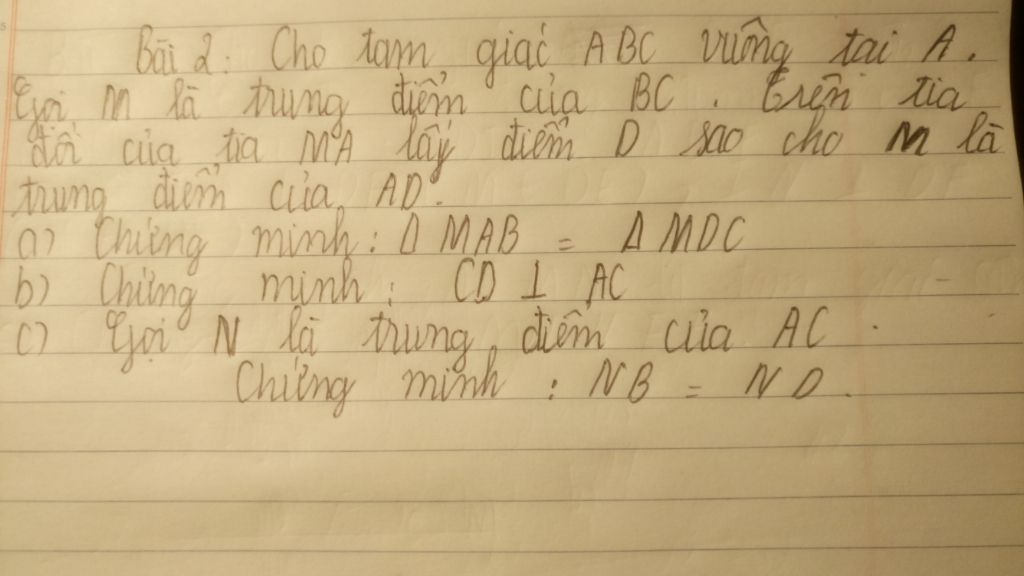 Bài 2: Cho tam giác ABC vuông tại A.
Gọi M là trung điểm của BC. Trên tia
đối của tia MA lấy điểm D sao cho M là
trung điểm của AD.
a) Chứng minh: Δ MAB = Δ MDC
b) Chứng minh: CD ⊥ AC
c) Gọi N là trung điểm của AC.
Chứng minh: NB = ND.